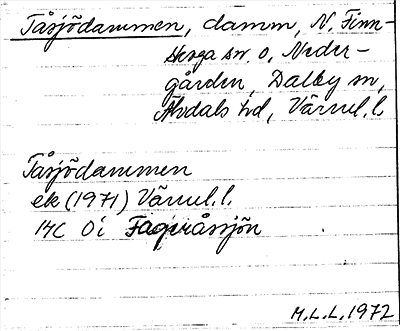 Tåsjödammen, damm, N. Finn-
skoga sn, o. Neder-
gården, Dalby sn,
Älvdals hd, Värml. l.
Tåsjödammen
ek (1971) Värml. l.
14C 0i Fageråssjön
M.L.L. 1972